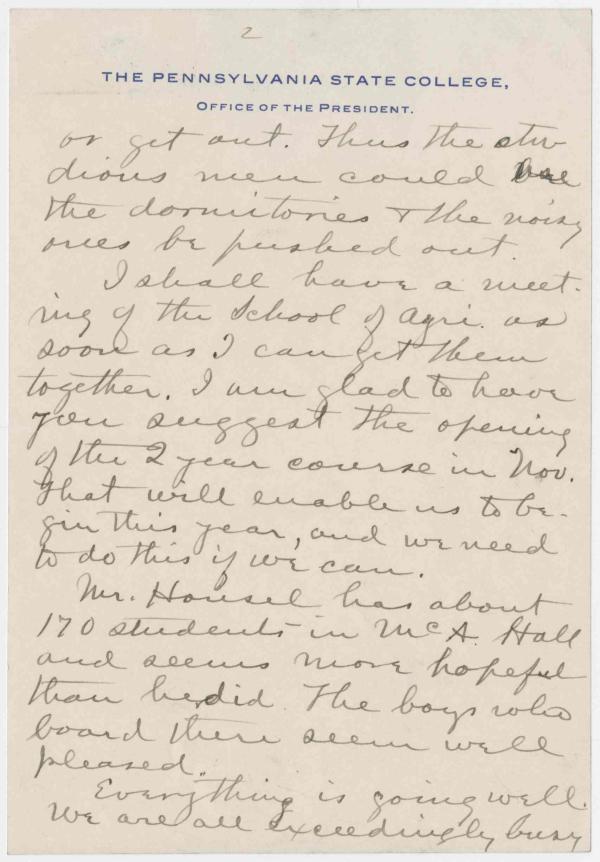 2
THE PENNSYLVANIA STATE COLLEGE,
OFFICE OF THE PRESIDENT.
or get out. Thus the stu-
dious men could
the dormitories & the noisy
ones be pushed out.
I shall have a meet-
ing of the School of Agri. as
soon as I can get them
together. I am glad to have
you suggest the opening
of the 2 year course in Nov.
That will enable us to be-
gin this year, and we need
to do this if we can.
Mr. Housel has about
170 students in McA. Hall
and seems more hopeful
than he did. The boys who
board there seem well
pleased.
Everything is going well.
We are all exceedingly busy